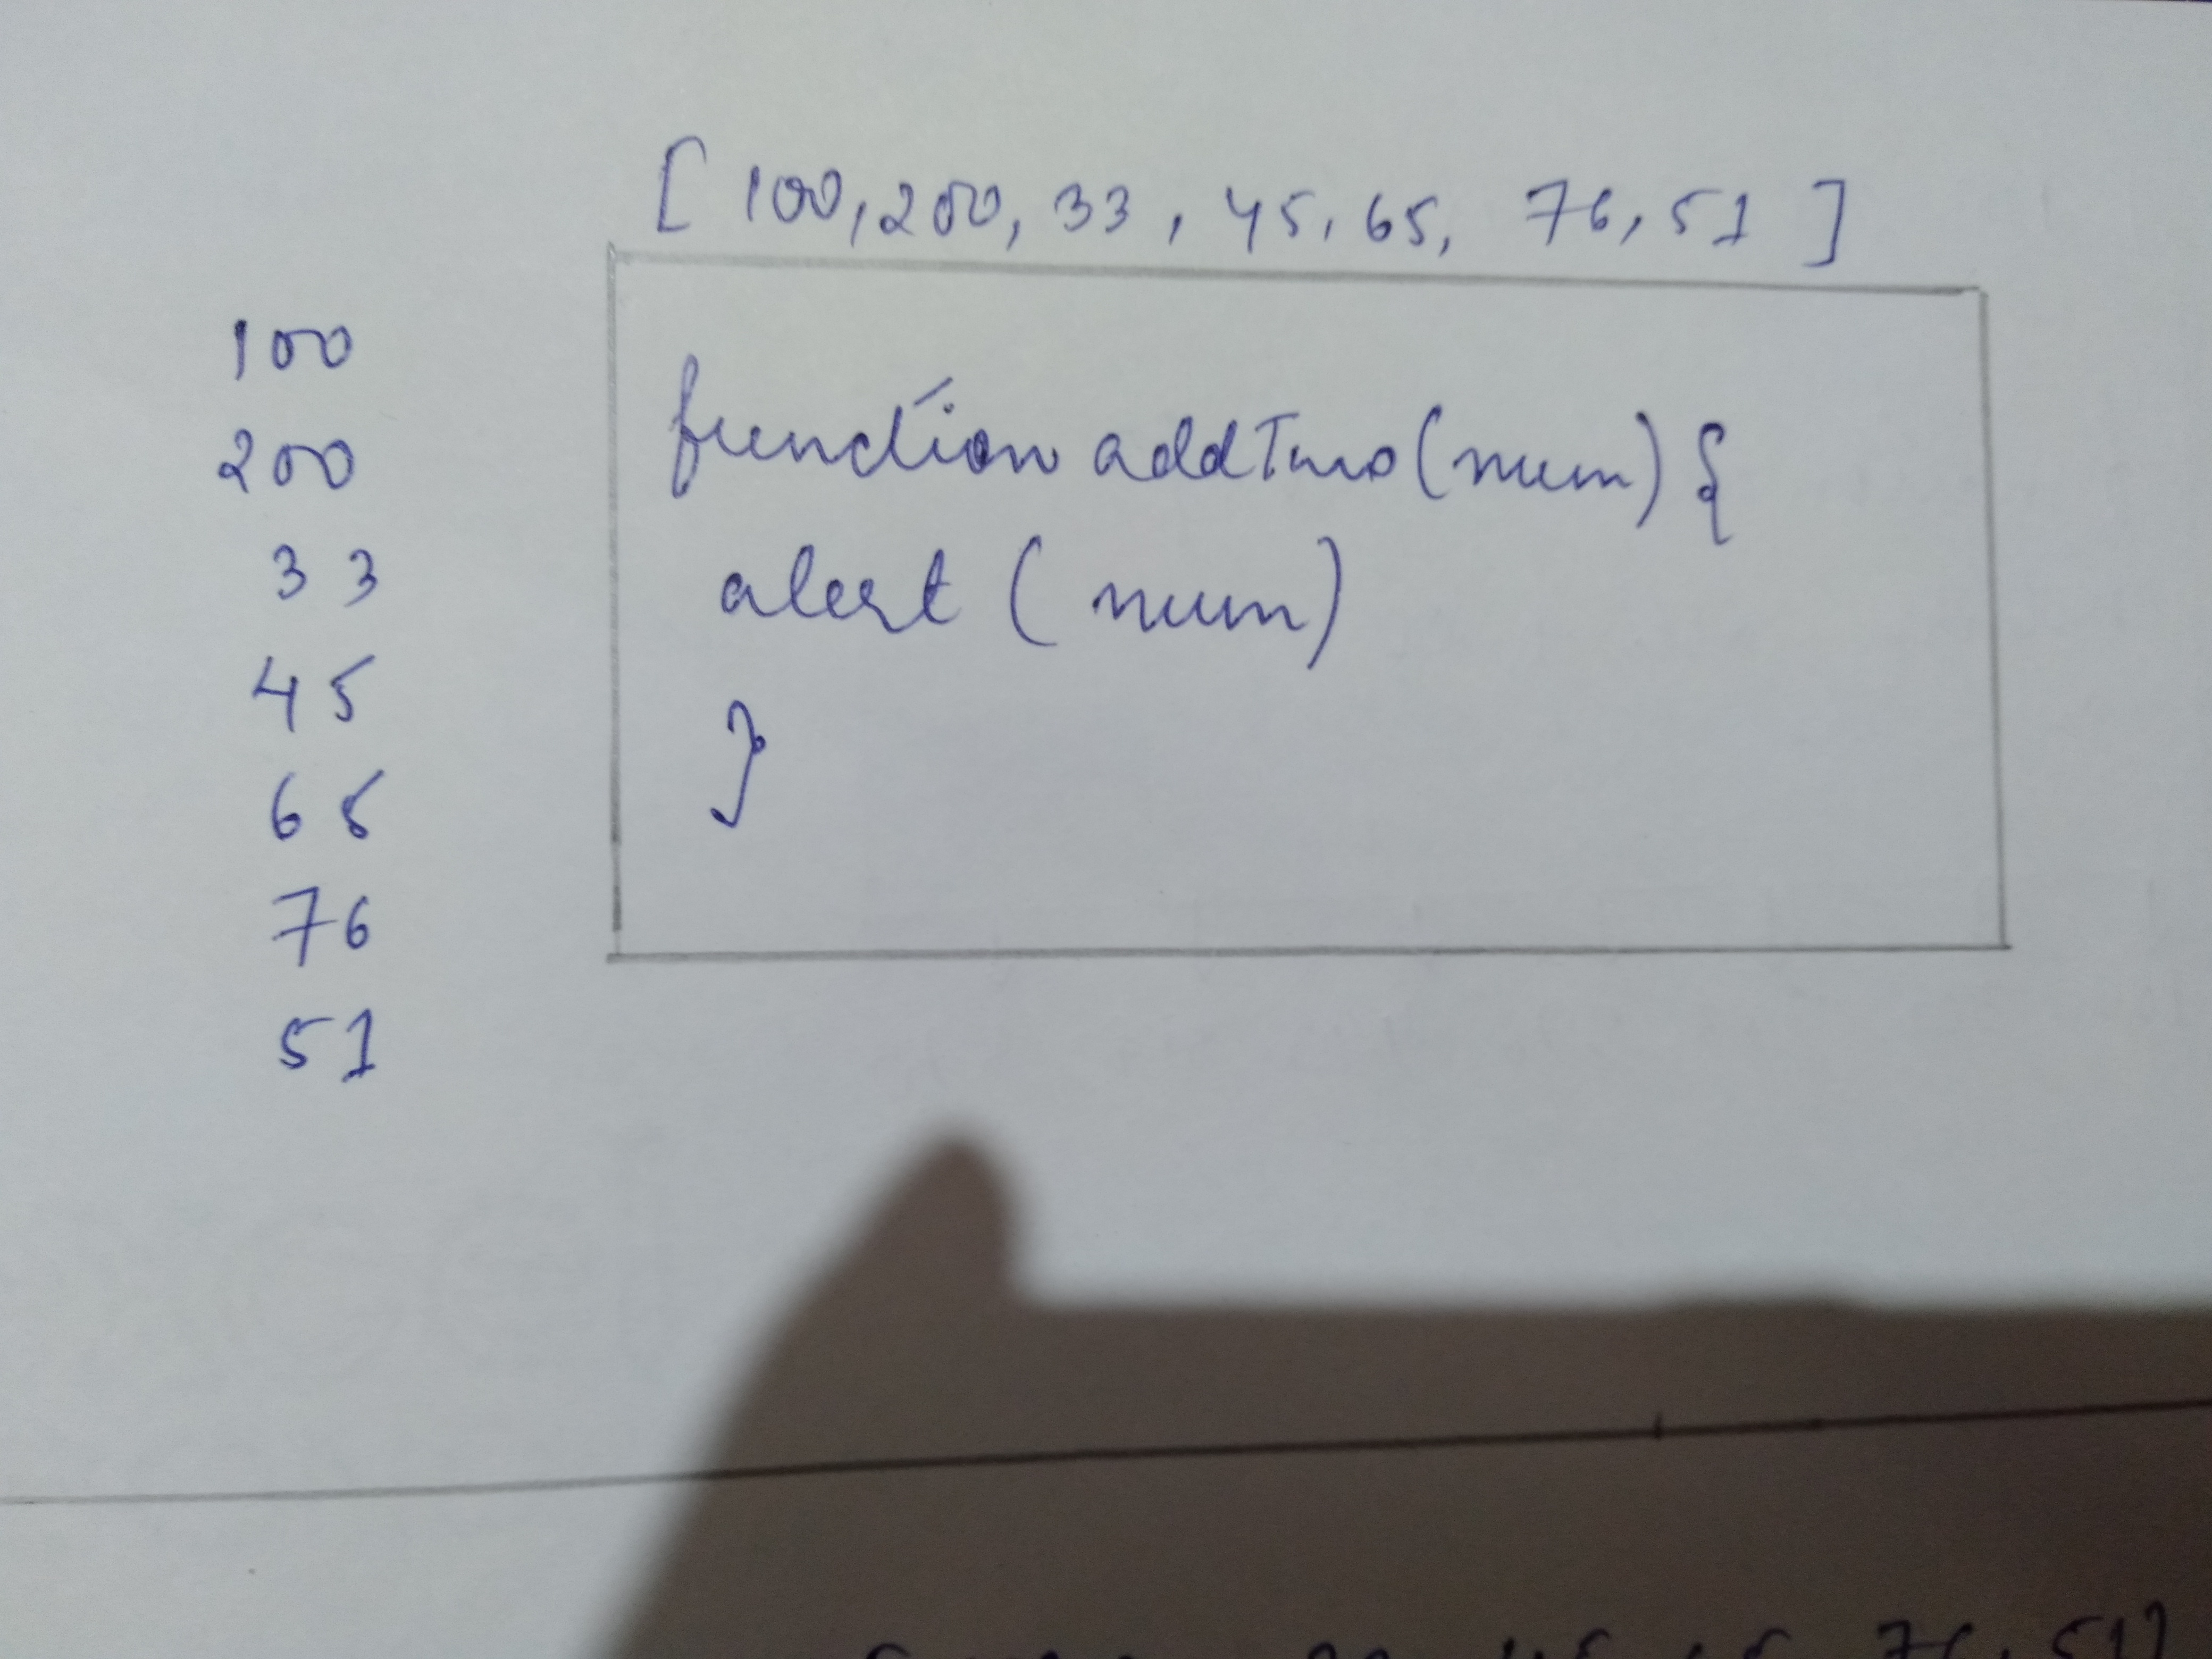 [ 100, 200, 33, 45, 65, 76, 51 ]
100
200
33
45
65
76
51
function addTwo (num) {
alert ( num )
}
76, 51]